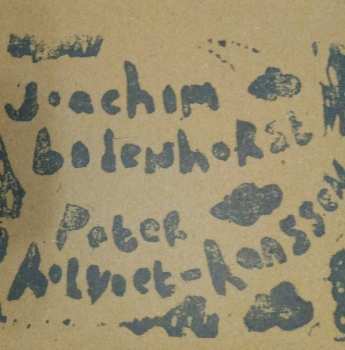 Joachim
badenhoRSt
PeteR
holvoet-hanssen